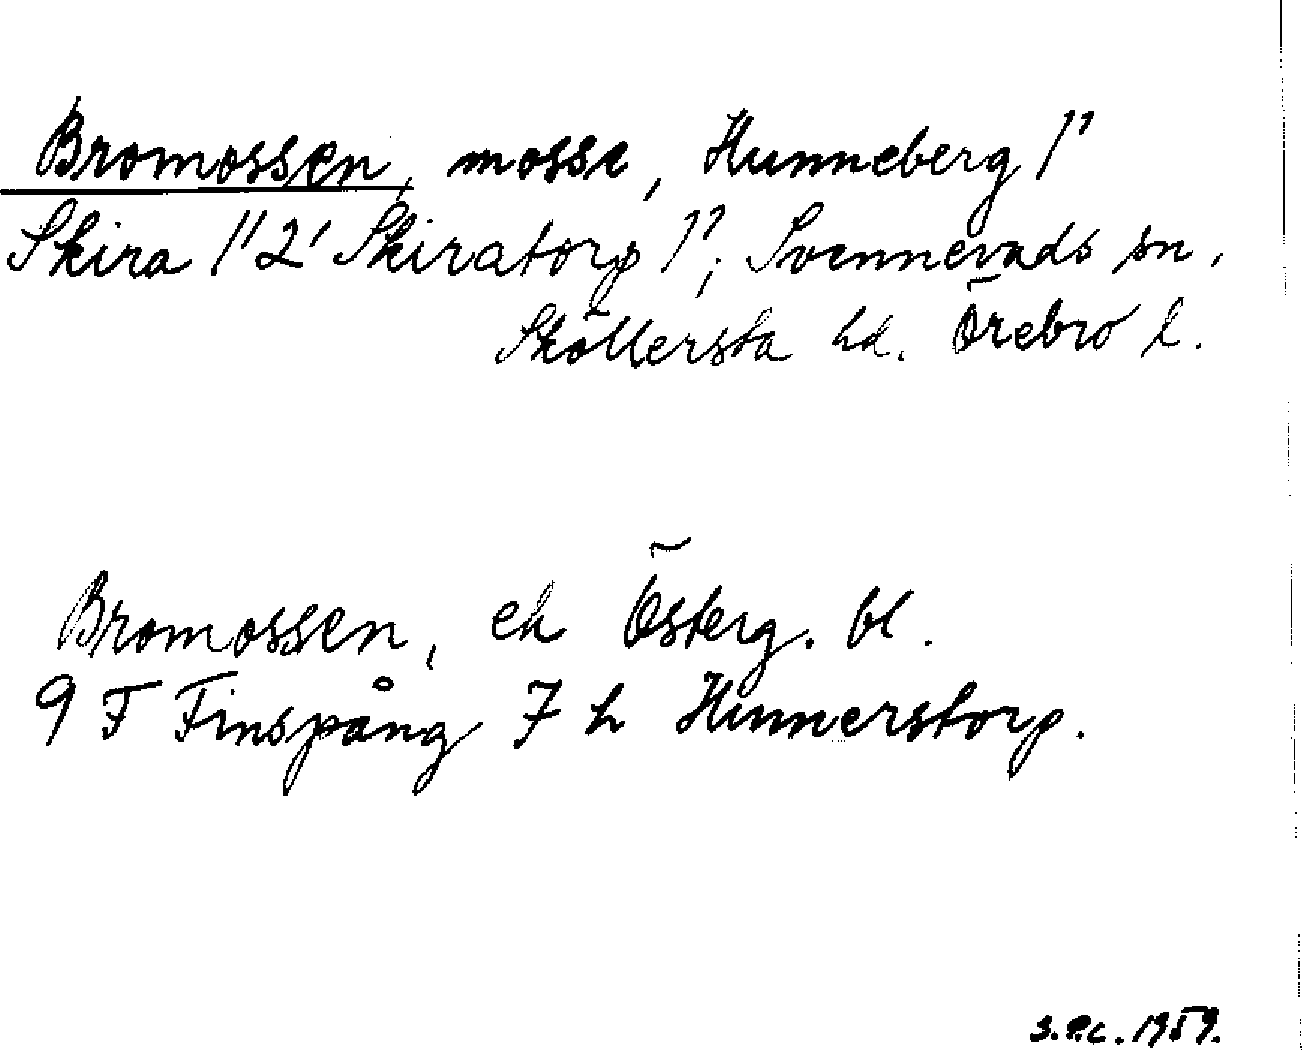 Bromossen, mosse, Hunneberg 1'
Skira 1'2' Skiratorp 1'; Svennevads sn,
Sköllersta hd. Örebro l.
Bromossen, ek Österg. bl.
9 F Finspång 7 h Hunnerstorp.
S.P.C. 1959.